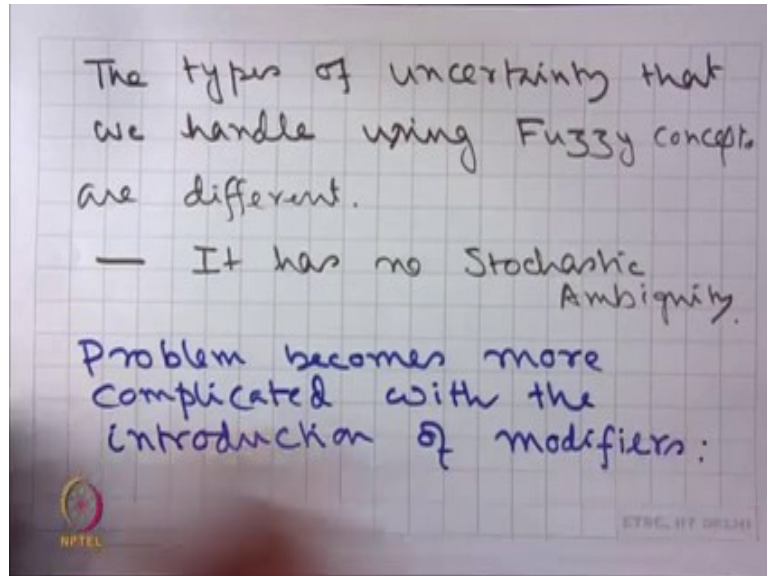 The types of uncertainty that
we handle using Fuzzy concepts
are different.
— It has no Stochastic
Ambiguity.
Problem becomes more
complicated with the
introduction of modifiers:
NPTEL
ETSC, IIT DELHI